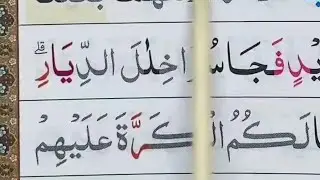 يدٍ فَجَاسُوا خِلٰلَ الدِّيَارِ
نَالَكُمُ الْكَرَّةَ عَلَيْهِمْ